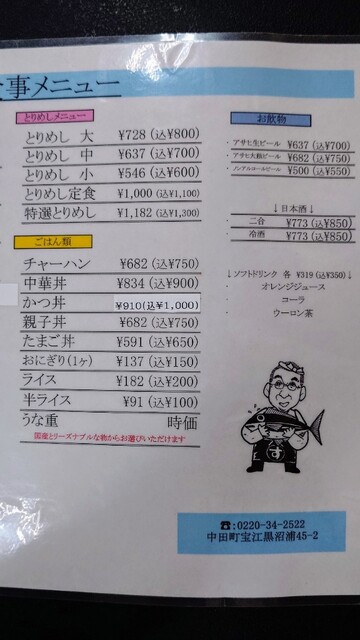 事メニュー
とりめしメニュー
とりめし 大 ¥728 (込¥800)
とりめし 中 ¥637 (込¥700)
とりめし 小 ¥546 (込¥600)
とりめし定食 ¥1,000 (込¥1,100)
特選とりめし ¥1,182 (込¥1,300)
ごはん類
チャーハン ¥682 (込¥750)
中華丼 ¥834 (込¥900)
かつ丼 ¥910(込¥1,000)
親子丼 ¥682 (込¥750)
たまご丼 ¥591 (込¥650)
おにぎり(1ヶ) ¥137 (込¥150)
ライス ¥182 (込¥200)
半ライス ¥91 (込¥100)
うな重 時価
国産とリーズナブルな物からお選びいただけます
お飲物
・ アサヒ生ビール ¥637 (込¥700)
・ アサヒ大瓶ビール ¥682 (込¥750)
・ ノンアルコールビール ¥500 (込¥550)
↓日本酒↓
・ 二合 ¥773 (込¥850)
・ 冷酒 ¥773 (込¥850)
↓ソフトドリンク 各 ¥319 (込¥350)↓
・ オレンジジュース
・ コーラ
・ ウーロン茶
す
☎:0220-34-2522
中田町宝江黒沼浦45-2